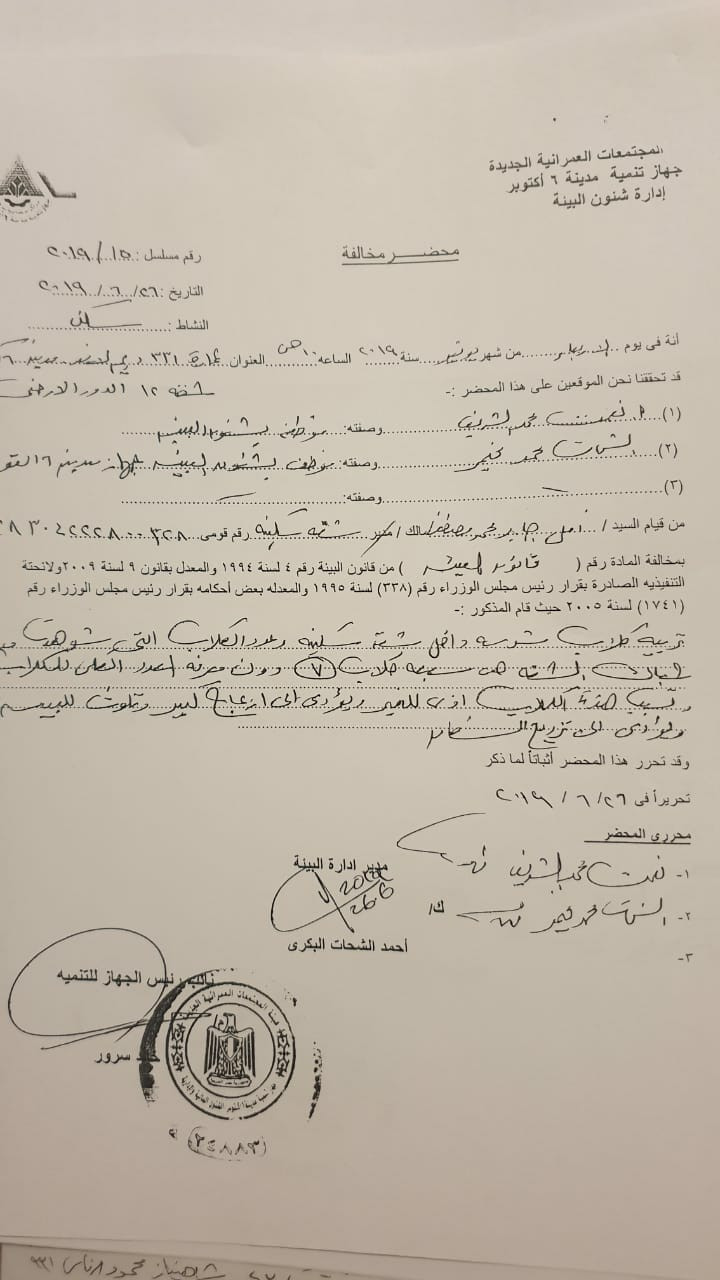 المجتمعات العمرانية الجديدة
جهاز تنمية مدينة ٦ أكتوبر
إدارة شئون البيئة
محضر مخالفة
رقم مسلسل : ١٥ / ٢٠١٩
التاريخ : ٢٦ / ٦ / ٢٠١٩
النشاط : سكن
أنة فى يوم الاربعاء من شهر يونيو سنة ٢٠١٩ الساعة : ١٠ ص العنوان عمارة ٣٣١
قد تحققنا نحن الموقعين على هذا المحضر :-
شقة ١٢ الدور الارضى
(١) نعمت محمد الشريف وصفته: موظف بشئون البيئة
(٢) الشحات محمد وصفته: موظف بشئون البيئة بجهاز مدينة ٦ اكتوبر
(٣) وصفته:
من قيام السيد / أمل جابر محمد مصطفى مالك / مدير شقة سكنية رقم قومى
بمخالفة المادة رقم ( قانون البيئة ) من قانون البيئة رقم ٤ لسنة ١٩٩٤ والمعدل بقانون ٩ لسنة ٢٠٠٩ ولائحتة
التنفيذيه الصادرة بقرار رئيس مجلس الوزراء رقم (٣٣٨) لسنة ١٩٩٥ والمعدله بعض أحكامه بقرار رئيس مجلس الوزراء رقم
(١٧٤١) لسنة ٢٠٠٥ حيث قام المذكور :-
تربية كلاب شرسه داخل شقة سكنية وعدد الكلاب التى شوهدت
الشقة هى سبعة كلاب (٧) دون معرفة العدد الكلى للكلاب
وتسبب هذه الكلاب اذى للغير ويؤدى الى ازعاج وتلوث للبيئة
ويؤدى الى ترويع السكان
وقد تحرر هذا المحضر أثباتاً لما ذكر
تحريراً فى ٢٦ / ٦ / ٢٠١٩
محررى المحضر
١- نعمت محمد الشريف
مدير ادارة البيئة
٢- الشحات محمد
أحمد الشحات البكرى
٣-
نائب رئيس الجهاز للتنميه
سرور
هيئة المجتمعات العمرانية الجديدة
(٢٤٨٨٣)